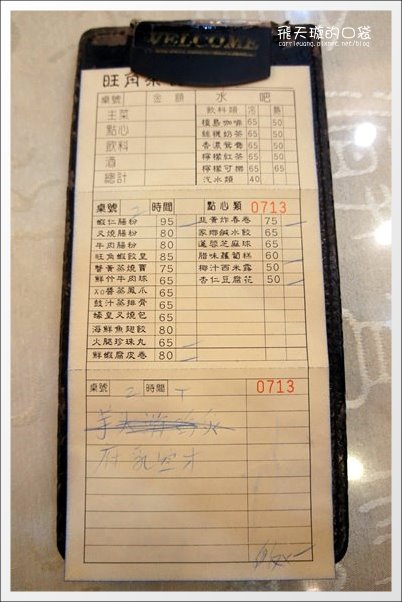 飛天璇的口袋
carrieuang.pixnet.net/blog
WELCOME
旺角茶
桌號 金額 水吧
主菜 飲料類 冷 熱
點心 檀島咖啡 65 50
飲料 絲襪奶茶 65 50
酒 香濃鴛鴦 65 50
總計 檸檬紅茶 65 50
檸檬可樂 65 50
汽水類 40
桌號 2 時間 點心類 0713
蝦仁腸粉 95 韭黃炸春卷 75
叉燒腸粉 80 家鄉鹹水餃 65
牛肉腸粉 80 蓮蓉芝麻球 65
旺角蝦餃皇 85 腊味蘿蔔糕 60
蟹黃蒸燒賣 75 椰汁西米露 50
鮮竹牛肉球 65 杏仁豆腐花 50
Xo醬蒸鳳爪 65
豉汁蒸排骨 65
蠔皇叉燒包 65
海鮮魚翅餃 80
火腿珍珠丸 65
鮮蝦腐皮卷 80
桌號 2 時間 0713
腐乳空才